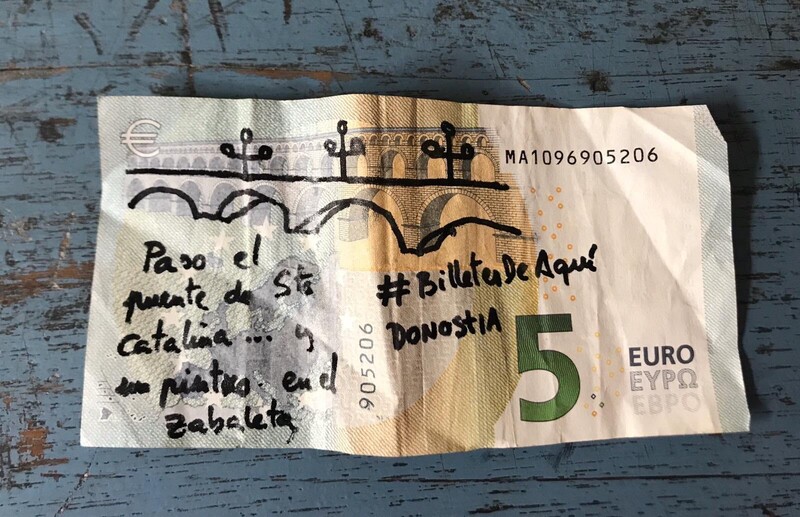 €
MA1096905206
Paso el
puente de Sta
Catalina... y
un pintxo en el
Zabaleta
#BilletesDeAquí
DONOSTIA
905206
5
EURO
ΕΥΡΩ
ЕВРО